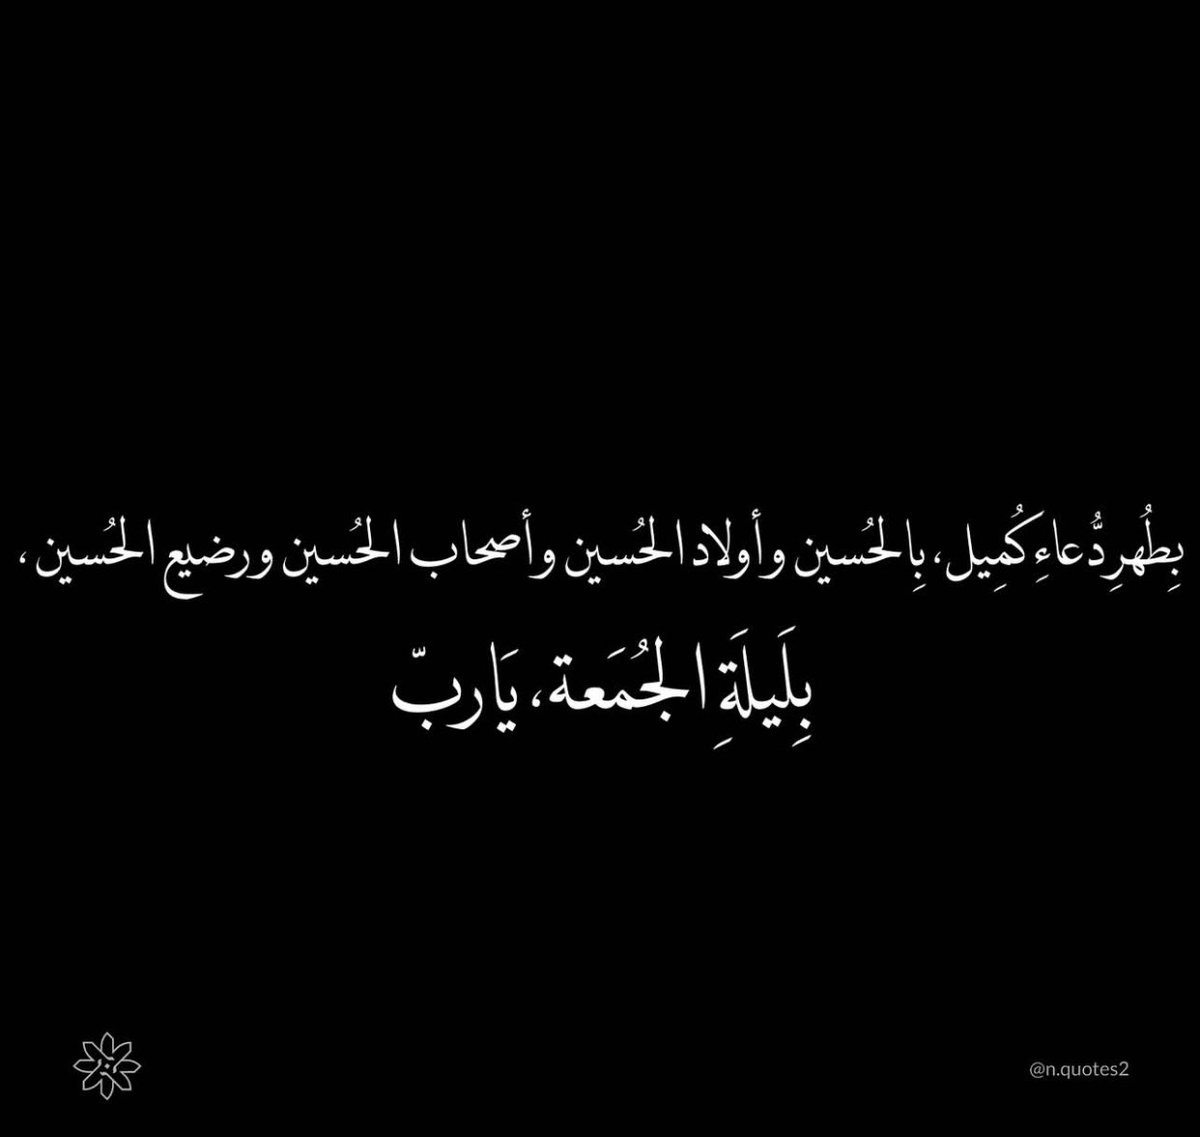 بِطُهرِ دُّعاءِ كُمِيل، بِالحُسين وأولاد الحُسين وأصحاب الحُسين ورضيع الحُسين ،
بِلَيلَةِ الجُمَعة، يَاربّ
@n.quotes2